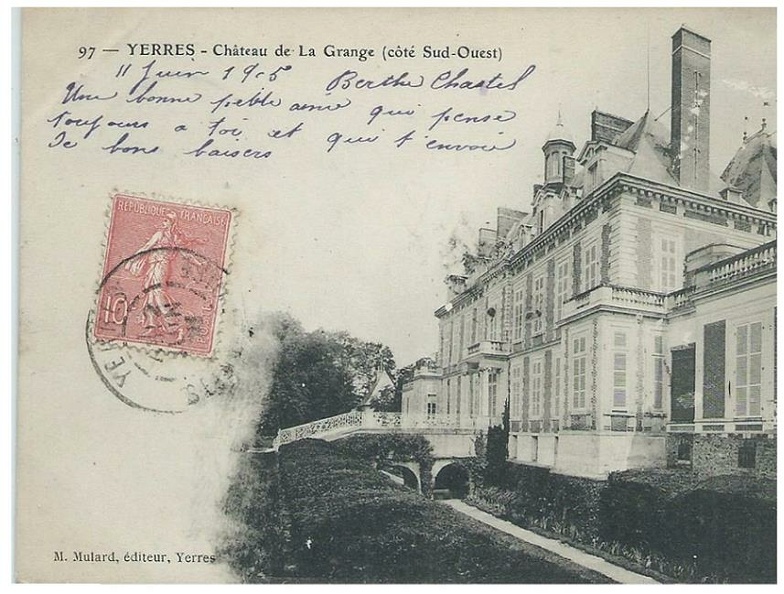 97 — YERRES - Château de La Grange (côté Sud-Ouest)
11 Juin 1905 Berthe Chastel
Une bonne petite amie qui pense
toujours a toi et qui t'envoie
de bons baisers
REPUBLIQUE FRANÇAISE
10
YERRES
M. Mulard, éditeur, Yerres